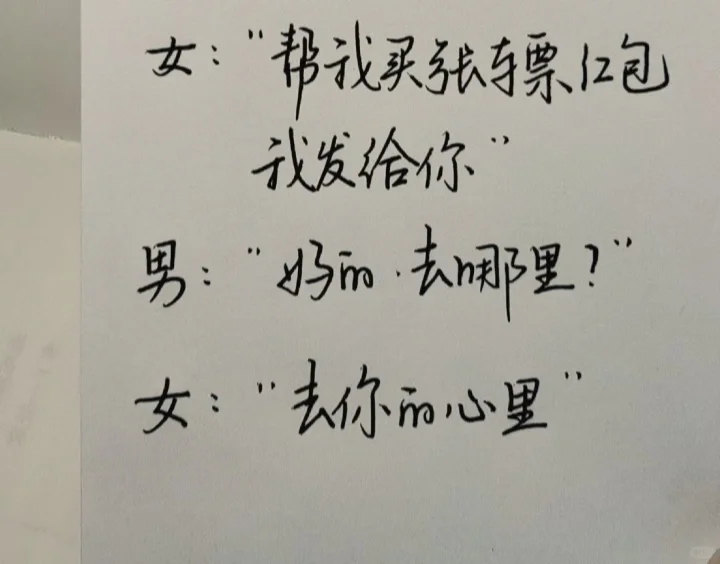 女：“帮我买张车票红包
我发给你”
男：“好的.去哪里？”
女：“去你的心里”